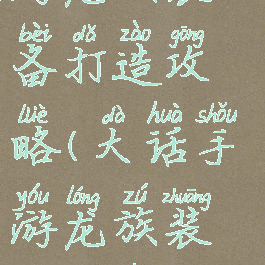 bèi dǎ zào gōng
备打造攻
lüè dà huà shǒu
略(大话手
yóu lóng zú zhuāng
游龙族装